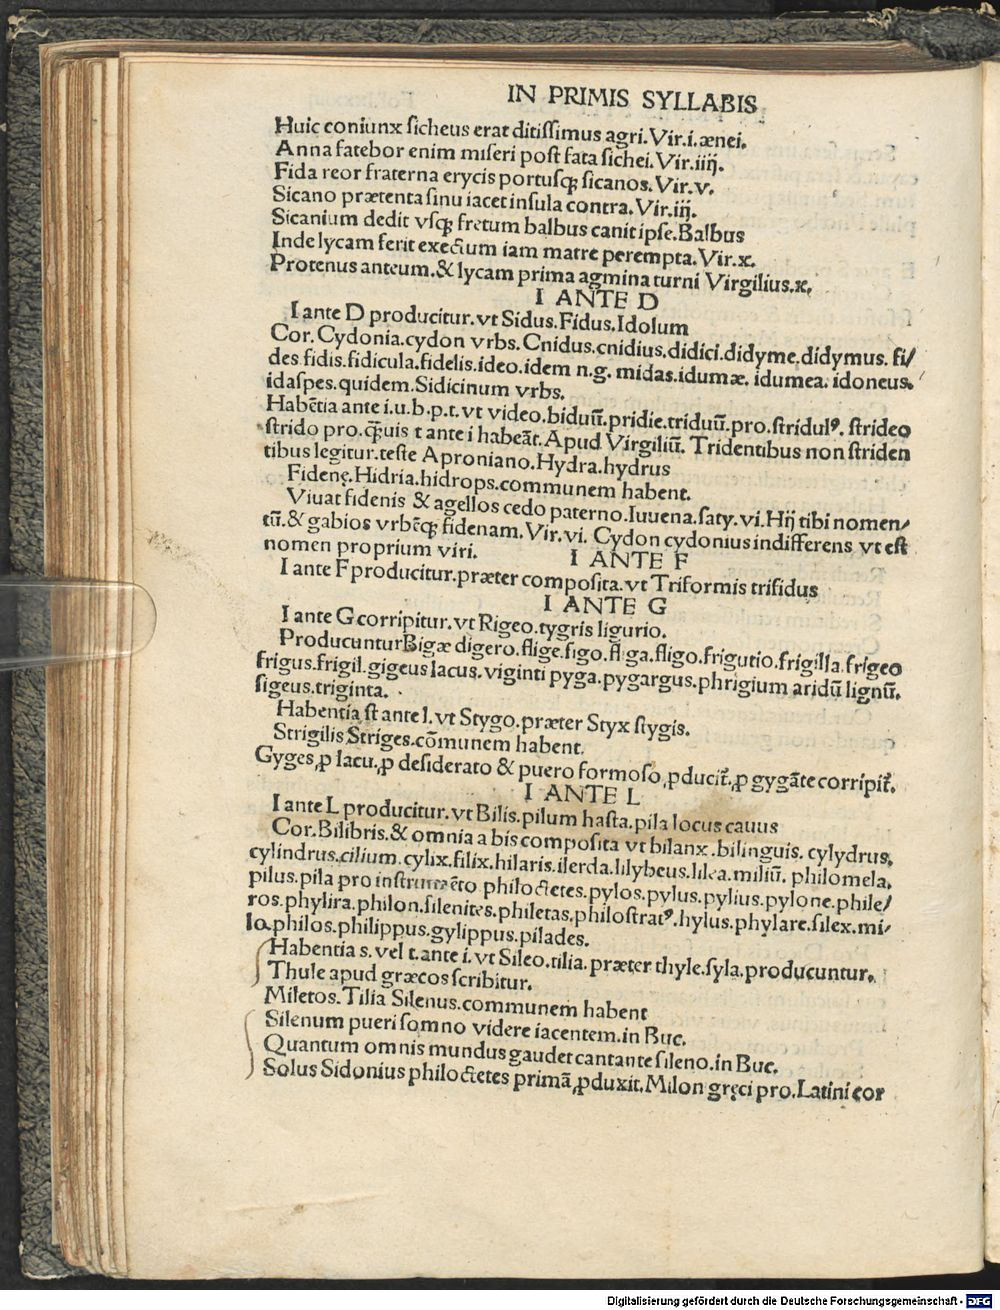 IN PRIMIS SYLLABIS
Huic coniunx sicheus erat ditissimus agri. Vir. i. ænei.
Anna fatebor enim miseri post fata sichei. Vir. iiij.
Fida reor fraterna erycis portusqꝫ sicanos. Vir. v.
Sicano prætenta sinu iacet insula contra. Vir. iij.
Sicanium dedit vsqꝫ fretum balbus canit ipse. Balbus
Inde lycam ferit exectum iam matre perempta. Vir. x.
Protenus anteum. & lycam prima agmina turni Virgilius. x.
I ANTE D
I ante D producitur. vt Sidus. Fidus. Idolum
Cor. Cydonia. cydon vrbs. Cnidus. cnidius. didici. didyme. didymus. fi/
des fidis. fidicula. fidelis. ideo. idem n. g. midas. idumæ. idumea. idoneus.
idaspes. quidem. Sidicinum vrbs.
Habētia ante i. u. b. p. t. vt video. biduū. pridie. triduū. pro. stridulꝰ. strideo
strido pro. q̃uis t ante i habeāt. Apud Virgiliū. Tridentibus non striden
tibus legitur. teste Aproniano. Hydra. hydrus
Fidenę. Hidria. hidrops. communem habent.
Viuat fidenis & agellos cedo paterno. Iuuena. saty. vi. Hij tibi nomen/
tū. & gabios vrbēqꝫ fidenam. Vir. vi. Cydon cydonius indifferens vt est
nomen proprium viri.
I ANTE F
I ante F producitur. præter composita. vt Triformis trifidus
I ANTE G
I ante G corripitur. vt Rigeo. tygris ligurio.
Producuntur Bigæ digero. flige. figo. fliga. fligo. frigutio. frigilla. frigeo
frigus. frigil. gigeus lacus. viginti pyga. pygargus. phrigium aridū lignū.
sigeus. triginta.
Habentia st ante i. vt Stygo. præter Styx stygis.
Strigilis Striges. cōmunem habent.
Gyges, ꝓ lacu. ꝓ desiderato & puero formoso, ꝓducit᷑. ꝓ gygāte corripit᷑.
I ANTE L
I ante L producitur. vt Bilis. pilum hasta. pila locus cauus
Cor. Bilibris. & omnia a bis composita vt bilanx. bilinguis. cylydrus.
cylindrus. cilium. cylix. filix. hilaris. ilerda. lilybeus. lilea. miliū. philomela.
pilus. pila pro instrumēto philoctetes. pylos. pylus. pylius. pylone. phile/
ros. phylira. philon. silenites. philetas. philostratꝰ. hylus. phylare. silex. mi/
lo. philos. philippus. gylippus. pilades.
Habentia s. vel t. ante i. vt Sileo. tilia. præter thyle. syla. producuntur.
Thule apud græcos scribitur.
Miletos. Tilia Silenus. communem habent
Silenum pueri somno videre iacentem. in Buc.
Quantum omnis mundus gaudet cantante sileno. in Buc.
Solus Sidonius philoctetes primā, ꝓduxit. Milon gręci pro. Latini cor
Digitalisierung gefördert durch die Deutsche Forschungsgemeinschaft - DFG